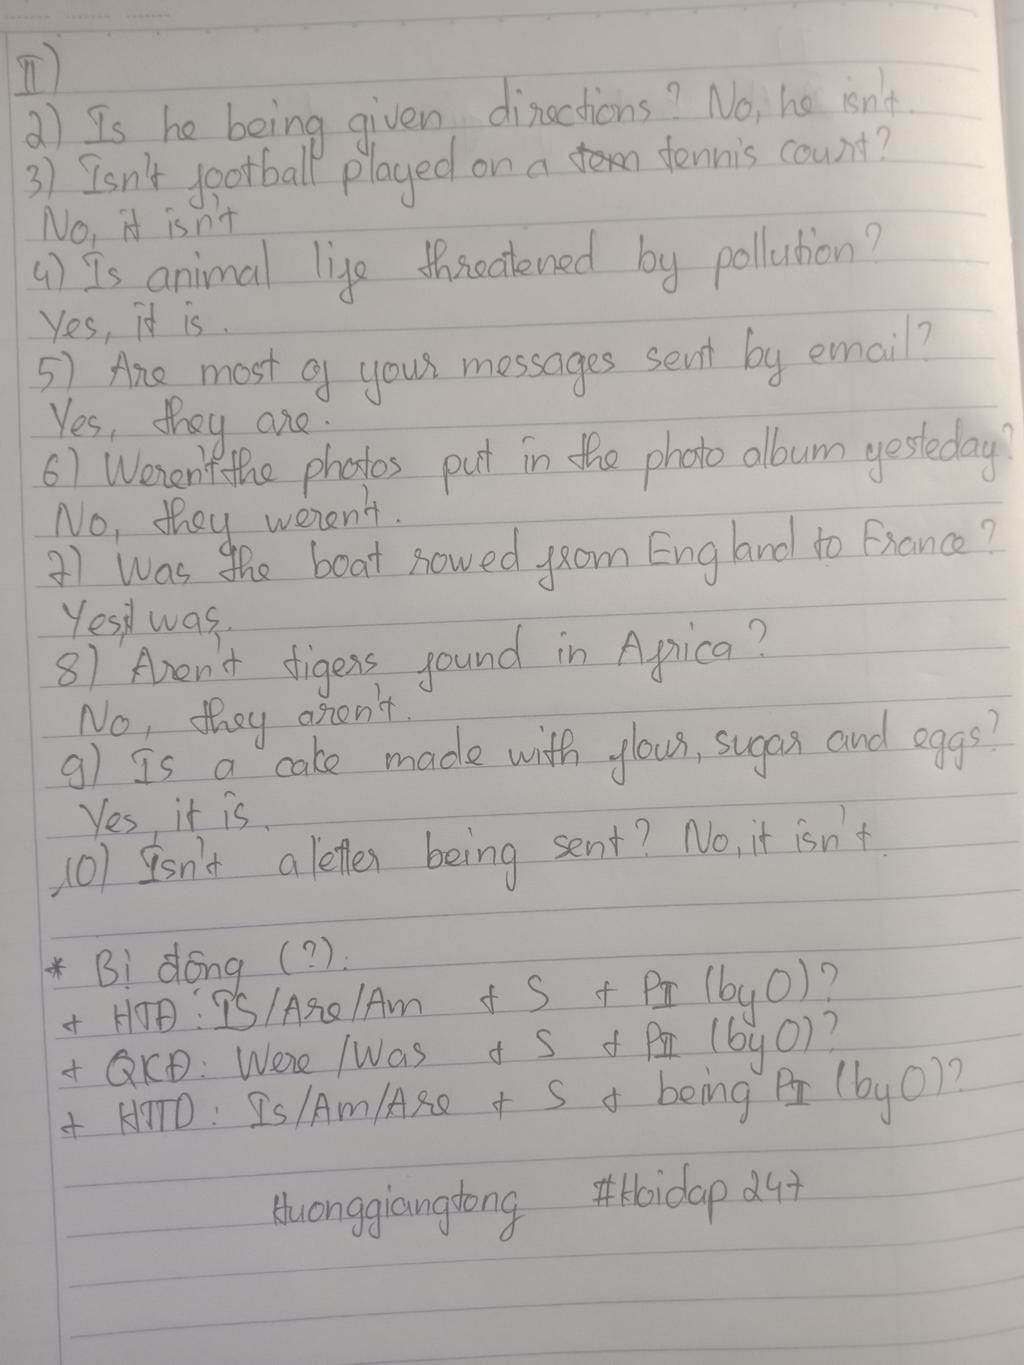 II)
2) Is he being given directions? No, he isn't.
3) Isn't football played on a tennis court?
No, it isn't
4) Is animal life threatened by pollution?
Yes, it is.
5) Are most of your messages sent by email?
Yes, they are.
6) Weren't the photos put in the photo album yesteday?
No, they weren't.
7) Was the boat rowed from England to France?
Yes, it was.
8) Aren't tigers found in Africa?
No, they aren't.
9) Is a cake made with flour, sugar and eggs?
Yes, it is.
10) Isn't a letter being sent? No, it isn't.
* Bị động (?):
+ HTĐ: IS/Are/Am + S + PII (by O)?
+ QKĐ: Were/Was + S + PII (by O)?
+ HTTD: Is/Am/Are + S + being PII (by O)?
Huonggiangtong #Hoidap 247